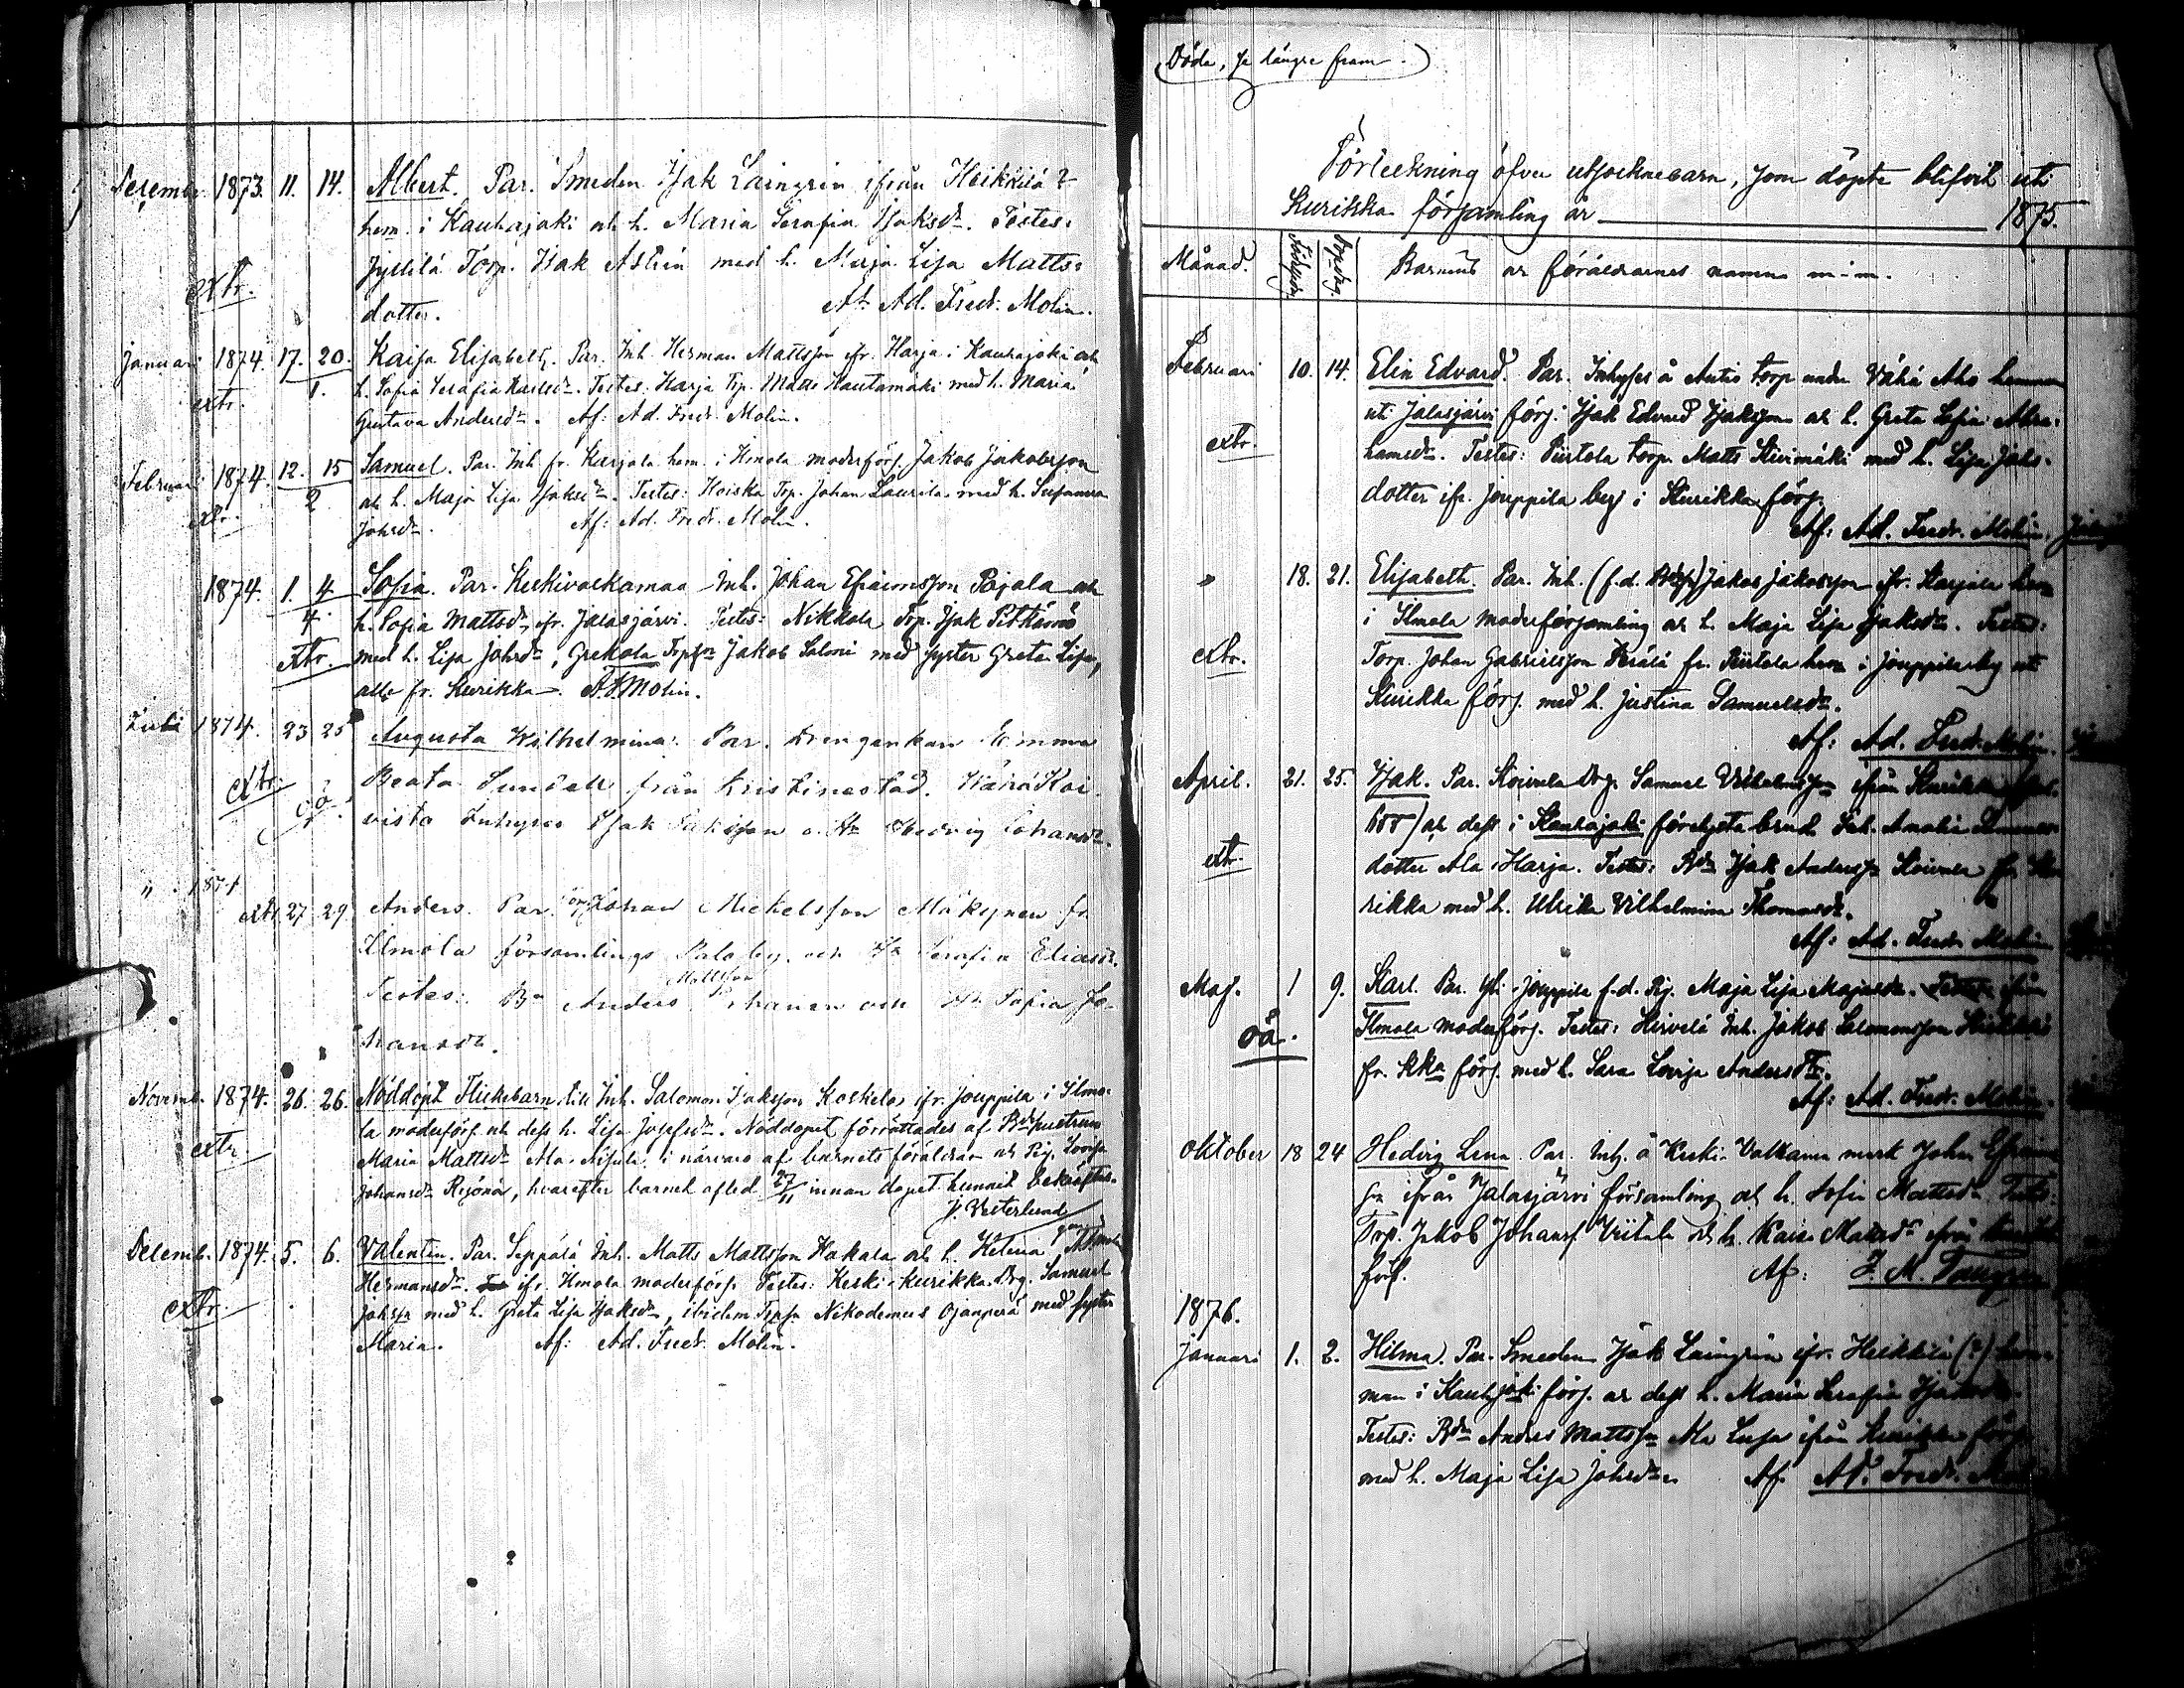 Decemb. 1873. 11. 14. Albert. Par. Smeden Isak Laingren ifrån Heikkilä ?
hem. i Kauhajoki och h. Maria Serafia Isaksdr. Testes:
Jyllilä Torp. Isak Astren med h. Maja Lisa Matts-
extr.
dotter. Af Ad. Fredr. Molin.
Januari 1874. 17. 20. Kaisa Elisabeth. Par. Inh. Herman Mattsson ifr. Harja i Kauhajoki och
extr. 1. h. Sofia Serafia Karlsdr. Testes: Harja Trp. Matts Hautamäki med h. Maria
Gustava Andersdr. Af: Ad. Fredr. Molin.
Februari 1874. 12. 15 Samuel. Par. Inh. fr. Karjala hem. i Ilmola moderförs. Jakob Jakobsson
extr. 2 och h. Maja Lisa Isaksdr. Testes: Koiska Trp. Johan Laurila med h. Susanna
Johsdr. Af: Ad. Fredr. Molin.
1874. 1. 4 Sofia. Par. Keskivalkamaa Inh. Johan Efraimsson Pajala och
4 h. Sofia Mattsdr, ifr. Jalasjärvi. Testes: Nikkola Trp. Isak Pitkämö
extr. med h. Lisa Johsdr, Grekola Trpsn Jakob Saloni med syster Greta Lisa,
alla fr. Kurikka. A.F. Molin.
Juli 1874. 23 25 Augusta Wilhelmina. Par. Drengenkan Emma
extr. oä. Beata Sundell från Kristinestad. Koi-
visto Inhyses Isak Isaksson o. Hu Hedvig Johansdr.
" 1874
extr. 27 29. Anders. Par. Johan Michelsson Mäkynen fr.
Ilmola församlings Palo by. och Hu Serafia Eliasdr.
Mattsson
Testes: Bn Anders och Hu Sofia Jo-
hansdr.
Novemb. 1874. 26. 26. Nöddöpt Flickebarn till Inh. Salomon Isaksson Koskela ifr. Jouppila i Ilmo-
extr. la moderförs. och dess h. Lisa Josefsdr. Nöddopet förrättades af Bdehustrun
Maria Mattsdr Ala i närvaro af barnets föräldrar och Pig. Lovisa
Johansdr, hvarefter barnet afled 27/11 innan dopet hunnit bekräftas.
J. Vesterlund
Decemb. 1874. 5. 6. Valentin. Par. Seppälä Inh. Matts Mattsson Hakala och h. Helena
Hermansdr. ifr. Ilmola moderförs. Testes: Keski-Kurikka Drg. Samuel
extr. Johssn med h. Greta Lisa Isaksdr, ibidem Trpsn Nikodemus Ojanperä med syster
Maria. Af: Ad. Fredr. Molin.
(Döda, se längre fram.)
Förteckning öfver utsocknebarn, som döpte blifvit uti
Kurikka församling år 1875.
Månad. Födelsedag. Dopdag. Barnens och föräldrarnes namn m.m.
Februari 10. 14. Elin Edvard. Par. Inhyses å Autio torp under Vähä Aho hemman
uti Jalasjärvi förs. Isak Edvard Isaksson och h. Greta Sofia Abra-
extr. hamsdr. Testes: Piirtola torp. Matts Kivimäki med h. Lisa Jaks-
dotter ifr. Jouppila by i Kurikka förs.
Af: Ad. Fredr. Molin.
" 18. 21. Elisabeth. Par. Inh. (f.d. Bdesn) Jakob Jakobsson ifr. Karjala hem
i Ilmola moderförsamling och h. Maja Lisa Isaksdr. Testes:
extr. Torp. Johan Gabrielsson Perälä fr. Piirtola hem i Jouppila by uti
Kurikka förs. med h. Justina Samuelsdr.
Af: Ad. Fredr. Molin.
April. 21. 25. Isak. Par. Koivula Drg. Samuel Vilhelmsson ifrån Kurikka
och dess i Kauhajoki förelysta brud Inh. Amalia
extr. dotter Ala Harja. Testes: Bdn Isak Andersson Koivula fr. Ku-
rikka med h. Ulrika Vilhelmina Thomasdr.
Af: Ad. Fredr. Molin
Maj. 1 9. Karl. Par. Jouppila f.d. Pig. Maja Lisa Majasdr. ifrån
oä. Ilmola moderförs. Testes: Hirvelä Inh. Jakob Salomonsson
fr. Kka förs. med h. Sara Lovisa Andersdtr.
Af: Ad. Fredr. Molin.
Oktober 18 24 Hedvig Lena. Par. Inh. å Keski-Valkama mark Johan Efraims-
sn ifrån Jalasjärvi församling och h. Sofia Mattsdr. Test:
Trp. Jakob Johanss. Viitala och h. Kaisa Mattsdr ifrån
förs. Af: J. M.
1876.
Januari 1. 2. Hilma. Par. Smeden Isak Laingren ifr. Heikkilä (?) hem-
man i Kauhajoki förs. och dess h. Maria Serafia Isaksdr.
Testes: Bdn Anders Mattsson Ala ifrån Kurikka förs.
med h. Maja Lisa Johsdr. Af Ad. Fredr. Molin